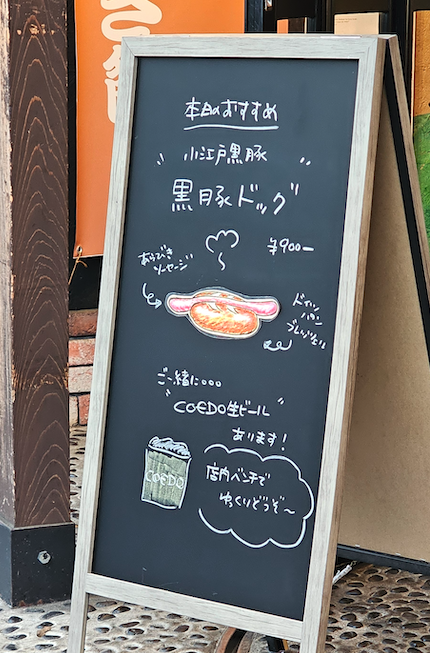 本日のおすすめ
小江戸黒豚
黒豚ドッグ
¥900-
あらびき
ソーセージ
ドイツパン
ご一緒に○○○
"COEDO生ビール"
あります!
COEDO
店内ベンチで
ゆっくりどうぞ〜